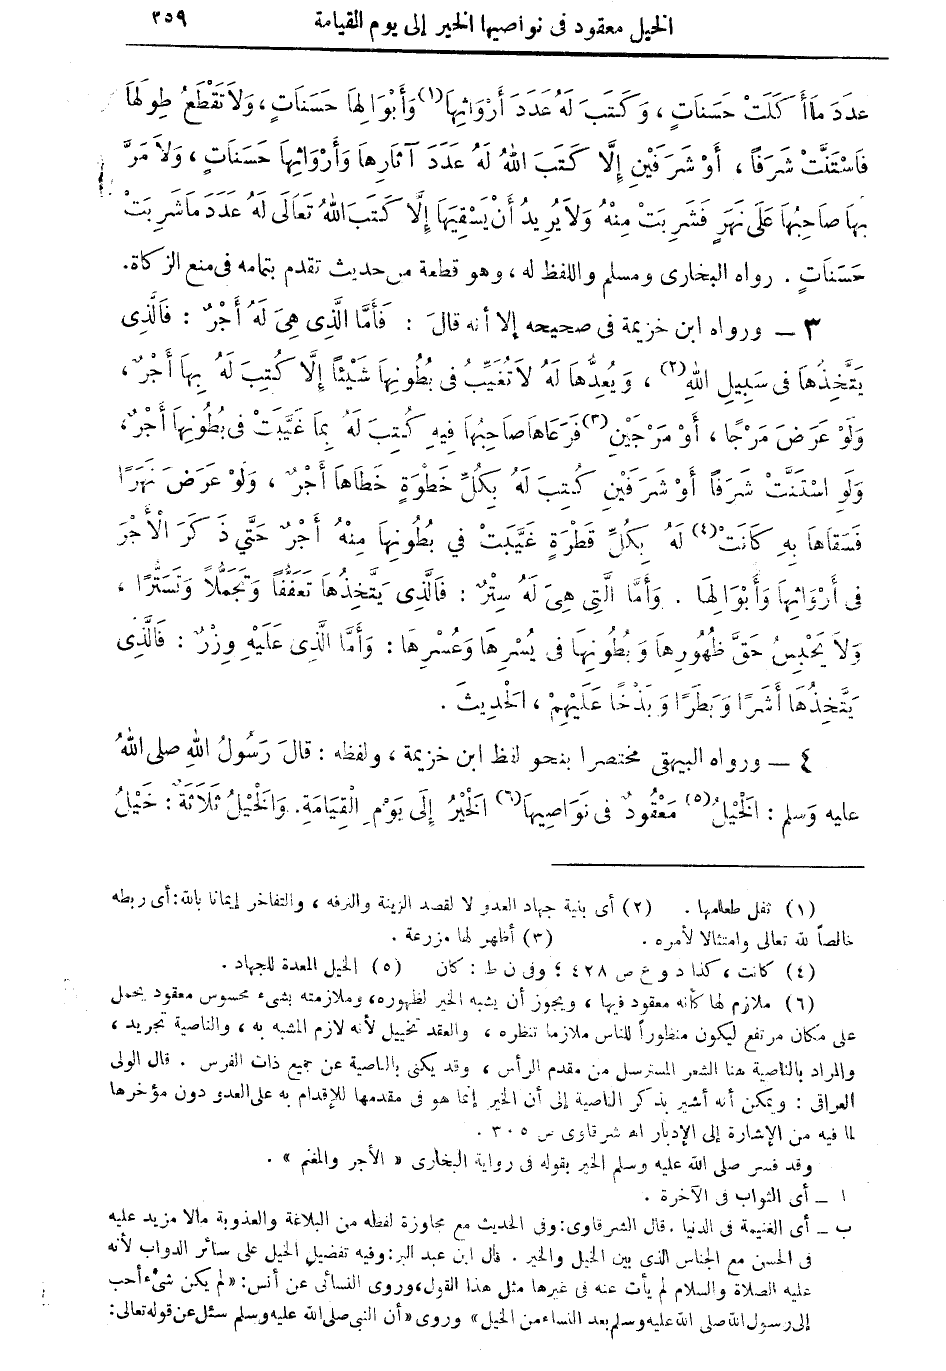 الخيل معقود فى نواصيها الخير إلى يوم القيامة ٣٥٩
عَدَدَ مَا أَكَلَتْ حَسَنَاتٍ ، وَكَتَبَ لَهُ عَدَدَ أَرْوَاثِهَا (١) وَأَبْوَالِهَا حَسَنَاتٍ ، وَلَا تَقْطَعُ طِوَلَهَا
فَاسْتَنَّتْ شَرَفاً ، أَوْ شَرَفَيْنِ إِلَّا كَتَبَ اللهُ لَهُ عَدَدَ آثَارِهَا وَأَرْوَاثِهَا حَسَنَاتٍ ، وَلَا مَرَّ
بِهَا صَاحِبُهَا عَلَى نَهَرٍ فَشَرِبَتْ مِنْهُ وَلَا يُرِيدُ أَنْ يَسْقِيَهَا إِلَّا كَتَبَ اللهُ تَعَالَى لَهُ عَدَدَ مَا شَرِبَتْ
حَسَنَاتٍ . رواه البخارى ومسلم واللفظ له ، وهو قطعة من حديث تقدم بتمامه فى منع الزكاة.
٣ — ورواه ابن خزيمة فى صحيحه إلا أنه قالَ : فَأَمَّا الَّذِى هِىَ لَهُ أَجْرٌ : فَالَّذِى
يَتَّخِذُهَا فى سَبِيلِ اللهِ (٢) ، وَيُعِدُّهَا لَهُ لَا تُغَيِّبُ فى بُطُونِهَا شَيْئاً إِلَّا كُتِبَ لَهُ بِهَا أَجْرٌ ،
وَلَوْ عَرَضَ مَرْجًا ، أَوْ مَرْجَيْنِ (٣) فَرَعَاهَا صَاحِبُهَا فِيهِ كُتِبَ لَهُ بِمَا غَيَّبَتْ فى بُطُونِهَا أَجْرٌ ،
وَلَوِ اسْتَنَّتْ شَرَفاً أَوْ شَرَفَيْنِ كُتِبَ لَهُ بِكُلِّ خَطْوَةٍ خَطَاهَا أَجْرٌ ، وَلَوْ عَرَضَ نَهَرًا
فَسَقَاهَا بِهِ كَانَتْ (٤) لَهُ بِكُلِّ قَطْرَةٍ غَيَّبَتْ في بُطُونِهَا مِنْهُ أَجْرٌ حَتَّي ذَكَرَ الْأَجْرَ
فى أَرْوَاثِهَا وَأَبْوَالِهَا . وَأَمَّا الَّتِى هِىَ لَهُ سِتْرٌ : فَالَّذِى يَتَّخِذُهَا تَعَفُّفاً وَتَجَمُّلاً وَتَسَتُّرًا ،
وَلَا يَحْبِسُ حَقَّ ظُهُورِهَا وَبُطُونِهَا فى يُسْرِهَا وَعُسْرِهَا : وَأَمَّا الَّذِى عَلَيْهِ وِزْرٌ : فَالَّذِى
يَتَّخِذُهَا أَشَرًا وَبَطَرًا وَبَذَخًا عَلَيْهِمْ ، الْحَدِيثَ .
٤ — ورواه البيهقى مختصرا بنحو لفظ ابن خزيمة ، ولفظه : قَالَ رَسُولُ اللهِ صلى اللهُ
عليه وَسلم : الْخَيْلُ (٥) مَعْقُودٌ فى نَوَاصِيهَا (٦) الْخَيْرُ إِلَى يَوْمِ الْقِيَامَةِ. وَالْخَيْلُ ثَلَاثَةٌ : خَيْلُ
(١) ثفل طعامها . (٢) أى بنية جهاد العدو لا لقصد الزينة والترفه ، والتفاخر إيمانا بالله : أى ربطه
خالصاً لله تعالى وامتثالا لأمره . (٣) أظهر لها مزرعة .
(٤) كانت ، كذا د و ع ص ٤٢٨ ؛ وفى ن ط : كان (٥) الخيل المعدة للجهاد .
(٦) ملازم لها كأنه معقود فيها ، ويجوز أن يشبه الخير لظهوره، وملازمته بشىء محسوس معقود يحمل
على مكان مرتفع ليكون منظوراً للناس ملازما تنظره ، والعقد تخييل لأنه لازم المشبه به ، والناصية تجريد ،
والمراد بالناصية هنا الشعر المسترسل من مقدم الرأس ، وقد يكنى بالناصية عن جميع ذات الفرس . قال الولى
العراقى : ويمكن أنه أشير بذكر الناصية إلى أن الخير إنما هو فى مقدمها للإقدام به على العدو دون مؤخرها
لما فيه من الإشارة إلى الإدبار اهـ شرقاوى س ٣٠٥ .
وقد فسر صلى الله عليه وسلم الخير بقوله فى رواية البخارى « الأجر والمغنم » .
ا — أى الثواب فى الآخرة .
ب — أى الغنيمة فى الدنيا . قال الشرقاوى : وفى الحديث مع مجاوزة لفظه من البلاغة والعذوبة مالا مزيد عليه
فى الحسن مع الجناس الذى بين الخيل والخير . قال ابن عبد البر : وفيه تفضيل الخيل على سائر الدواب لأنه
عليه الصلاة والسلام لم يأت عنه فى غيرها مثل هذا القول، وروى النسائى عن أنس : « لم يكن شىء أحب
إلى رسول الله صلى الله عليه وسلم بعد النساء من الخيل » وروى « أن النبى صلى الله عليه وسلم سئل عن قوله تعالى :